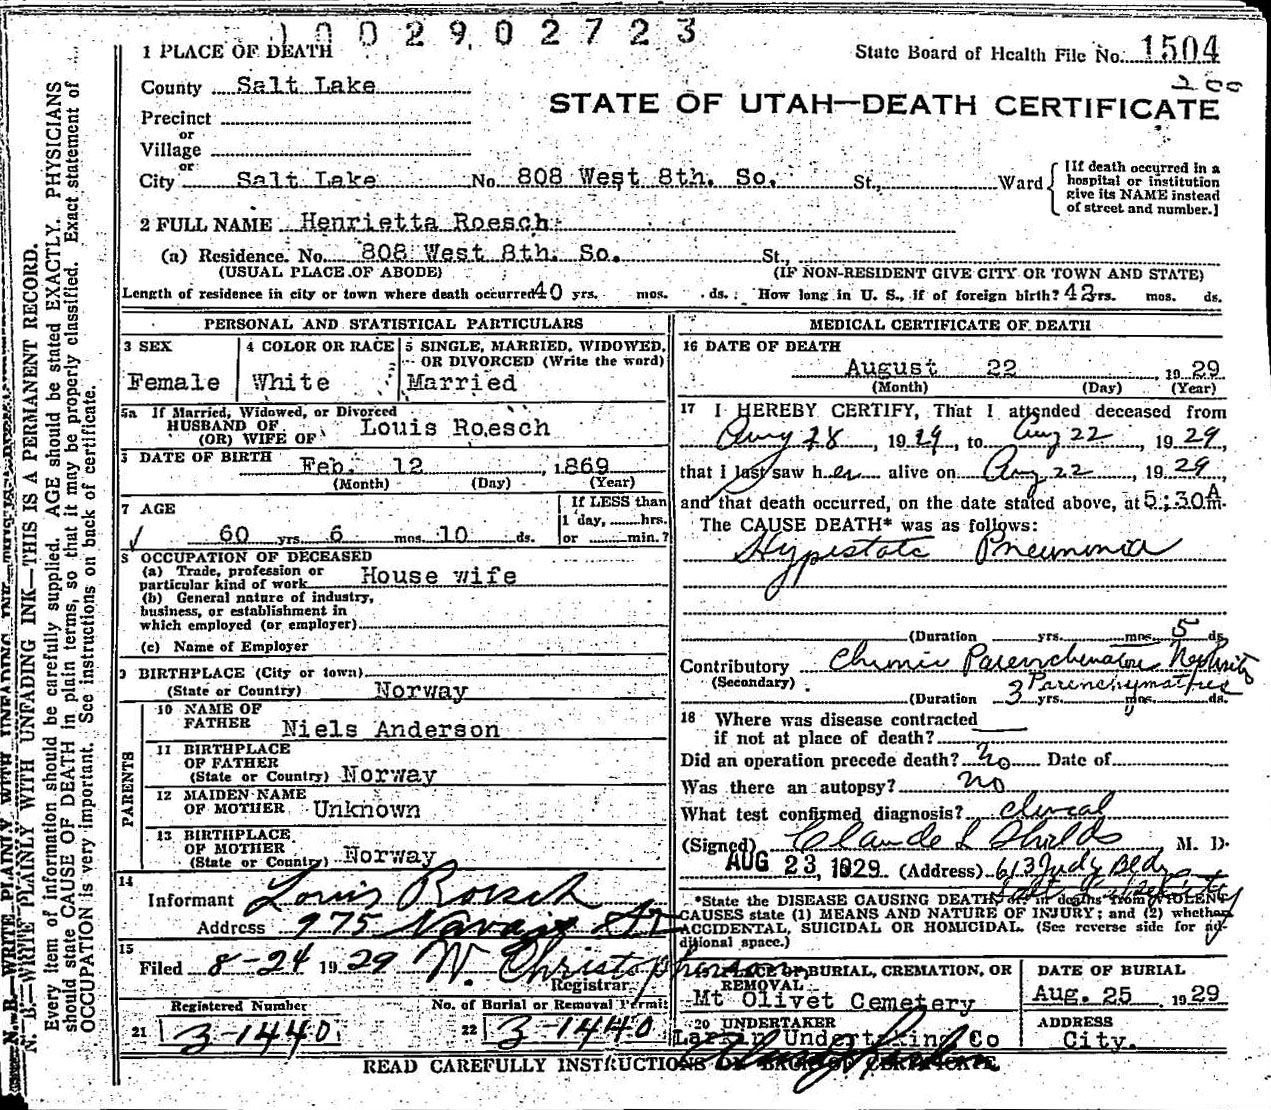 1002902723
1 PLACE OF DEATH
State Board of Health File No. 1504
200
County Salt Lake
STATE OF UTAH—DEATH CERTIFICATE
Precinct
or
Village
or
City Salt Lake No. 808 West 8th. So. St., Ward
[If death occurred in a
hospital or institution
give its NAME instead
of street and number.]
2 FULL NAME Henrietta Roesch
(a) Residence. No. 808 West 8th. So. St.,
(USUAL PLACE OF ABODE) (IF NON-RESIDENT GIVE CITY OR TOWN AND STATE)
Length of residence in city or town where death occurred 40 yrs. mos. ds. How long in U. S., if of foreign birth? 42 yrs. mos. ds.
PERSONAL AND STATISTICAL PARTICULARS
3 SEX
Female
4 COLOR OR RACE
White
5 SINGLE, MARRIED, WIDOWED,
OR DIVORCED (Write the word)
Married
5a If Married, Widowed, or Divorced
HUSBAND OF
(OR) WIFE OF Louis Roesch
DATE OF BIRTH
Feb. 12, 1869
(Month) (Day) (Year)
7 AGE
60 yrs. 6 mos. 10 ds.
If LESS than
1 day, hrs.
or min.?
8 OCCUPATION OF DECEASED
(a) Trade, profession or
particular kind of work House wife
(b) General nature of industry,
business, or establishment in
which employed (or employer)
(c) Name of Employer
9 BIRTHPLACE (City or town)
(State or Country) Norway
PARENTS
10 NAME OF
FATHER Niels Anderson
11 BIRTHPLACE
OF FATHER
(State or Country) Norway
12 MAIDEN NAME
OF MOTHER Unknown
13 BIRTHPLACE
OF MOTHER
(State or Country) Norway
14
Informant Louis Roesch
Address 975 Navajo St
15
Filed 8-24 1929 W. Christopherson
Registrar
Registered Number
21 3-1440
No. of Burial or Removal Permit
22 3-1440
MEDICAL CERTIFICATE OF DEATH
16 DATE OF DEATH
August 22, 1929
(Month) (Day) (Year)
17 I HEREBY CERTIFY, That I attended deceased from
Aug 18, 1929, to Aug 22, 1929
that I last saw her alive on Aug 22, 1929,
and that death occurred, on the date stated above, at 5:30 A m.
The CAUSE DEATH* was as follows:
Hypostatc Pneumonia
(Duration yrs. mos. 5 ds.
Contributory Chronic Parenchematous Nephritis
(Secondary) Parenchymatous
(Duration 3 yrs. mos. ds.
18 Where was disease contracted
if not at place of death?
Did an operation precede death? No Date of
Was there an autopsy? no
What test confirmed diagnosis? clinical
(Signed) Claude L Shields M. D.
AUG 23, 1929 (Address) 613 Judy Bldg
Salt Lake City
*State the DISEASE CAUSING DEATH, or in deaths from VIOLENT
CAUSES state (1) MEANS AND NATURE OF INJURY; and (2) whether
ACCIDENTAL, SUICIDAL OR HOMICIDAL. (See reverse side for ad-
ditional space.)
PLACE OF BURIAL, CREMATION, OR
REMOVAL
Mt Olivet Cemetery
DATE OF BURIAL
Aug. 25 1929
20 UNDERTAKER
Larkin Undertaking Co
ADDRESS
City.
READ CAREFULLY INSTRUCTIONS ON BACK OF CERTIFICATE
N. B.—WRITE PLAINLY WITH UNFADING INK—THIS IS A PERMANENT RECORD.
Every item of information should be carefully supplied. AGE should be stated EXACTLY. PHYSICIANS
should state CAUSE OF DEATH in plain terms, so that it may be properly classified. Exact statement of
OCCUPATION is very important. See instructions on back of certificate.